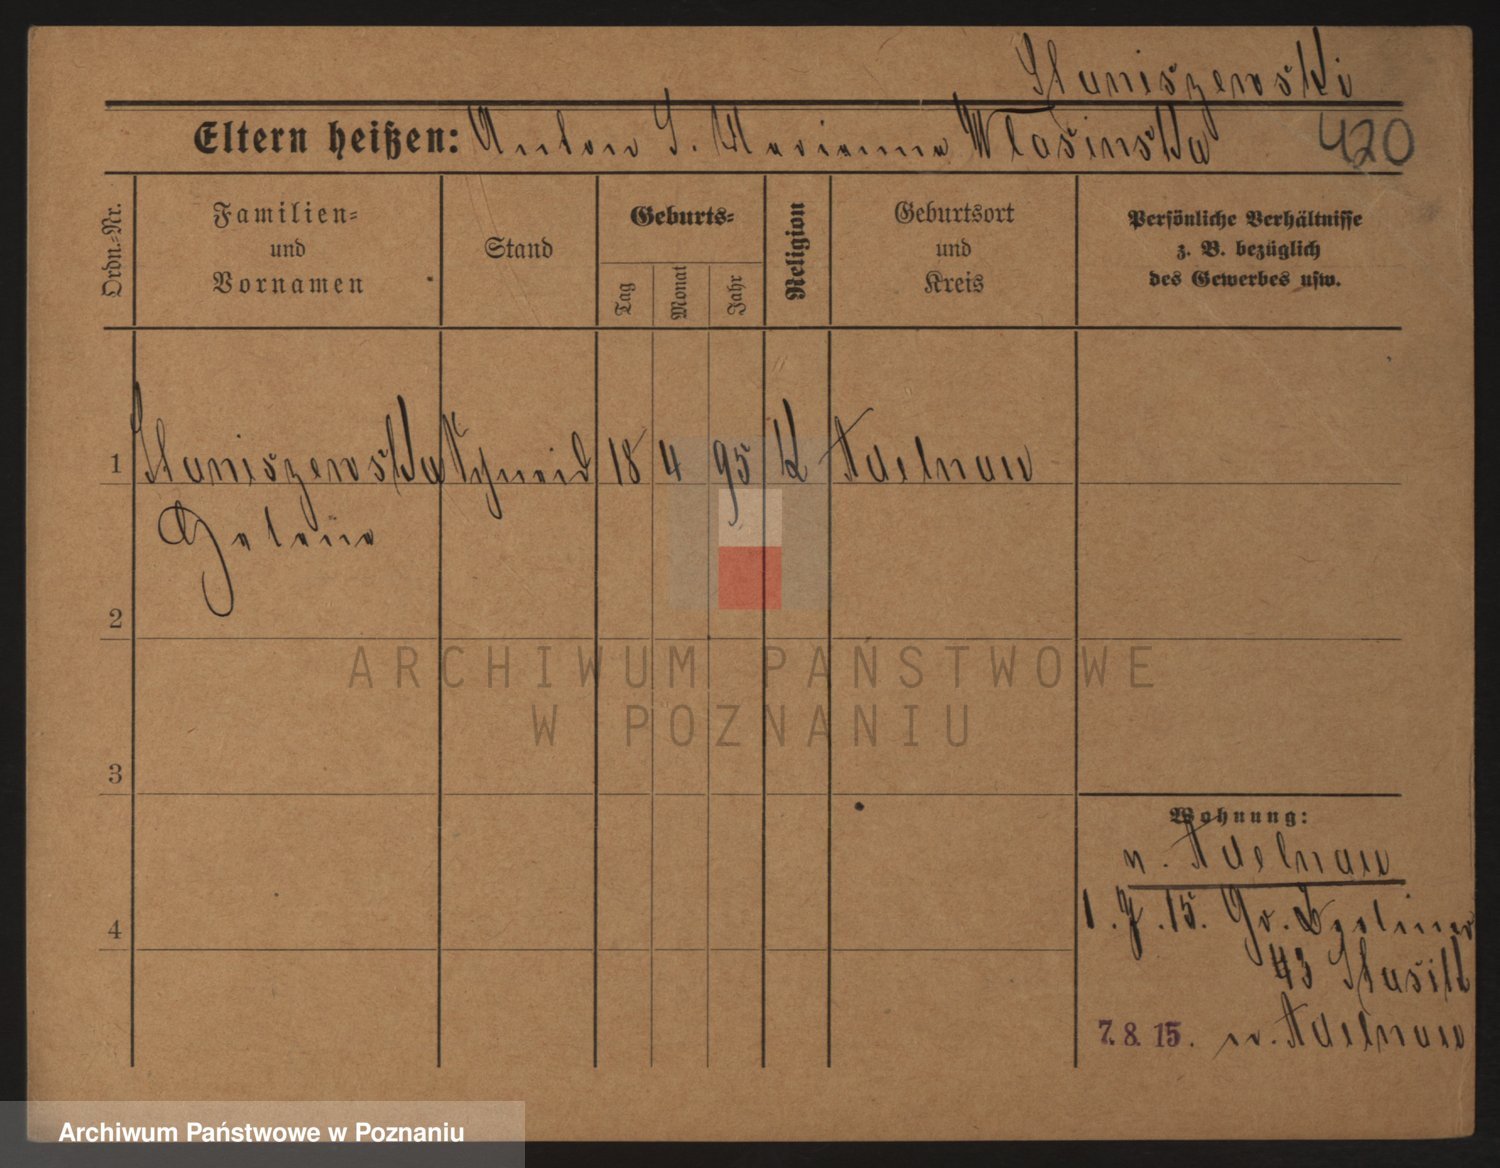 Staniszewski
Eltern heißen: Anton S. Marianna Wlosinska
420
Ordn.-Nr.
Familien-
und
Vornamen
Stand
Geburts-
Tag
Monat
Jahr
Religion
Geburtsort
und
Kreis
Persönliche Verhältnisse
z. B. bezüglich
des Gewerbes usw.
1 Staniszewska Schneid 18 4 95 K Adelnau
Helena
2
ARCHIWUM PAŃSTWOWE
W POZNANIU
3
Wohnung:
n. Adelnau
4
1. 7. 15. Gr. Berliner
43 Stasik
7. 8. 15. n. Adelnau
Archiwum Państwowe w Poznaniu